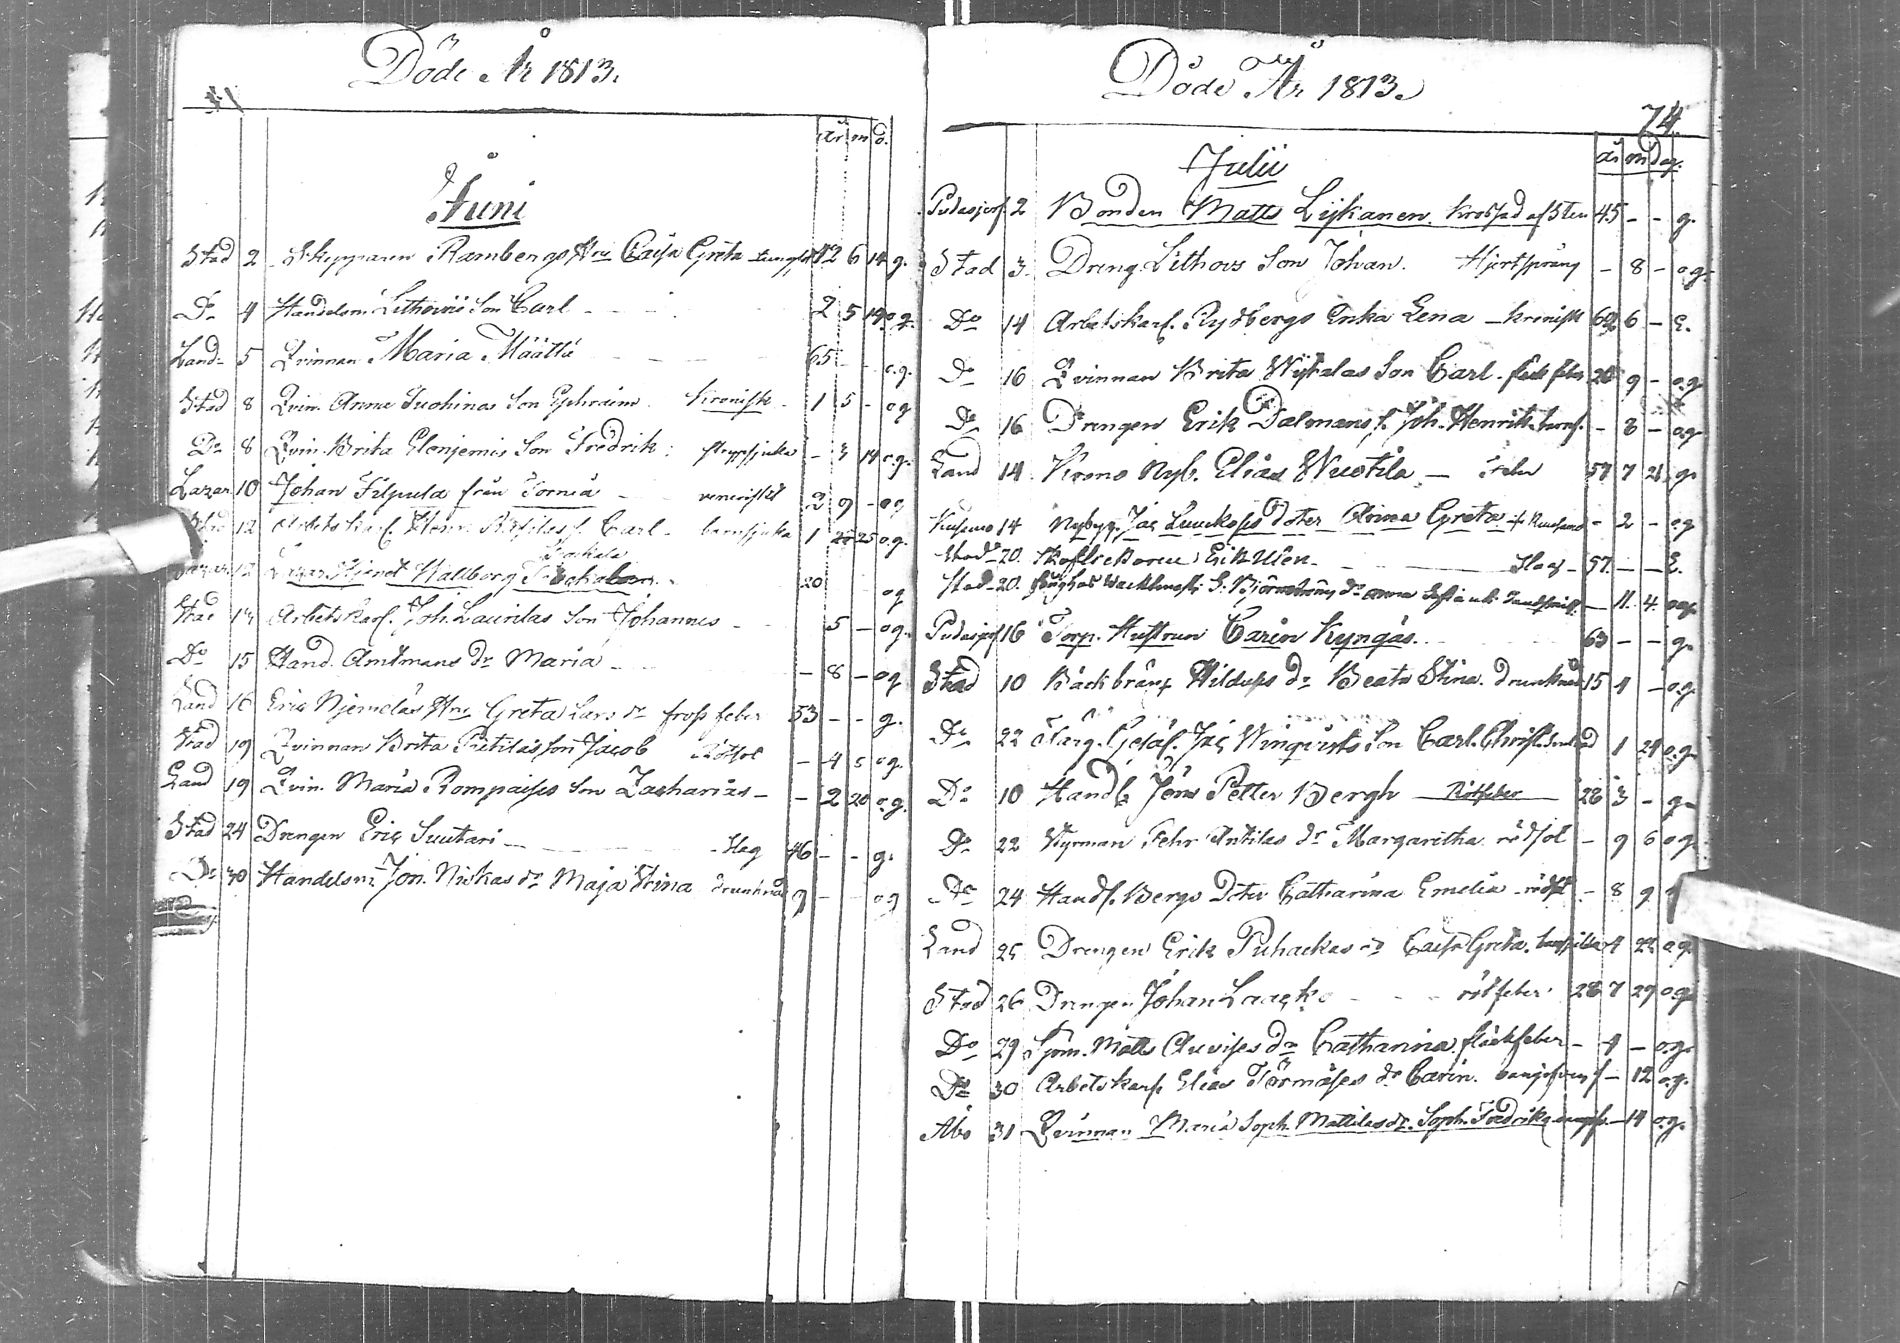 Döde År 1813.
år m d.
Juni
Stad 2 Skepparen Rambergs Hru Caisa Greta 42 6 14 g.
Do 4 Handelsm. Lithovii Son Carl 2 5 14 o.g.
Land 5 Qvinnan Maria Määttä 65 - - o.g.
Stad 8 Qvin. Anna Suohinas Son Ephraim kronisk 1 5 - o.g
Do 8 Qvin. Brita Son Fredrik - 3 14 o.g.
Lazar. 10 Johan Filpula från Torneå venerisk 2 9 - o.g
Stad 12 Arbets Karl. Henr. Carl barnsjuka 1 25 o.g.
12 Wallborg 20 o.g
Stad 13 Arbets Karl. Joh. Laurilas Son Johannes 5 - o.g.
Do 15 Hand. Amtmans dr Maria - 8 - o.g
Land 16 Eric Njemeläs Hru Greta Lars dr fross feber 53 - - g.
Stad 19 Qvinnan Brita Pietiläs son Jacob Rötsot - 4 o.g.
Land 19 Qvin. Maria Rompaises Son Zacharias - 2 20 o.g.
Stad 24 Drengen Eric Suutari Slag 46 - - g.
Do 30 Handelsm. Jon. Nickas dr Maja Stina drunknad 9 - - o.g
Döde År 1813.
74.
år m dag.
Julii
Pudasjerf 2 Bonden Matts Lijkanen krossad af Sten 45 - - g.
Stad 3 Dreng. Lithovs Son Johan. Hjertsprång - 8 - o.g.
Do 14 Arbetskarl. Rydbergs Enka Lena kronisk 69 6 - E.
Do 16 Qvinnan Brita Son Carl. 9 - o.g
Do 16 Drengen Erik Dalmans s. Joh. Henrik - 8 - o.g
Land 14 Krono Nyb. Elias Wuotila Feber 57 7 21 g.
Kusamo 14 Nybygg. Jac Dotter Anna Greta - 2 - o.g
Stad 20. Erik Ulen Slag 57 - - E.
Stad 20. Björnström dr Anna 11. 4. o.g.
Pudasjerf 16 Torp. Hustrun Carin Kyngäs 63 - - g.
Stad 10 Wildups dr Beata Stina. drunknad 15 4 - o.g.
Do 22 Färg. Gesäl. Jac Winqvists Son Carl. Christ. 1 29 o.g.
Do 10 Handl Jöns Petter Bergh Rötfeber 28 3 - g
Do 22 Styrman Fehr Antilas dr Margaretha rödsot - 9 6 o.g
Do 24 Handl. Bergs Doter Catharina Emelia - 8 9
Land 25 Drengen Erik Puhackas dr Caisa Greta. 4 22 o.g.
Stad 26 Drengen Johan Laacko rötfeber 28 7 29 o.g
Do 29 Sjöm. Matts dr Catharina fläckfeber - 4 - o.g.
Do 30 Arbetskarl. Elias Törmäses dr Carin. - 12 o.g.
Åbo 31 Qvinnan Maria Soph. Mattilas dr. Soph. Fredrika - 14 o.g.